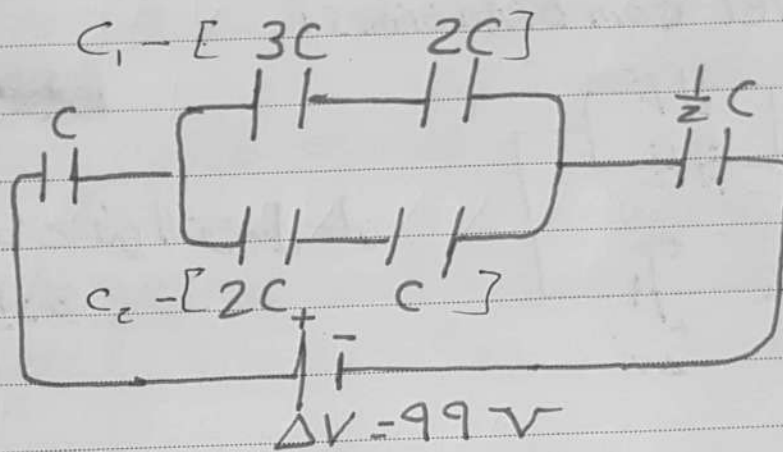 C₁ - [ 3C 2C ]
C
½ C
C₂ - [ 2C C ]
+ -
ΔV = 99 V